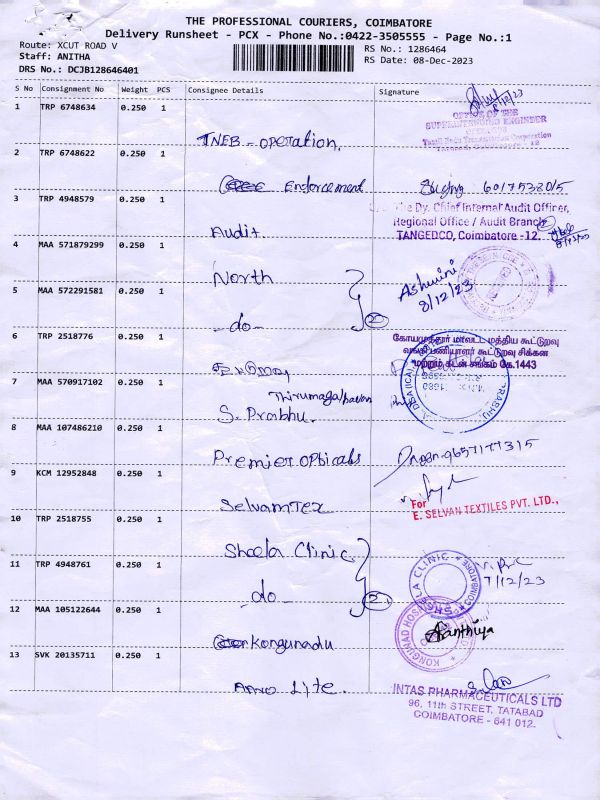 THE PROFESSIONAL COURIERS, COIMBATORE
Delivery Runsheet - PCX - Phone No.:0422-3505555 - Page No.:1
Route: XCUT ROAD V
Staff: ANITHA
DRS No.: DCJB128646401
RS No.: 1286464
RS Date: 08-Dec-2023
S No Consignment No Weight PCS Consignee Details Signature
1 TRP 6748634 0.250 1
TNEB - Operation.
OFFICE OF THE
SUPERINTENDING ENGINEER
2 TRP 6748622 0.250 1
Endorcement
3 TRP 4948579 0.250 1
Audit.
The Dy. Chief Internal Audit Officer,
Regional Office / Audit Branch
TANGEDCO, Coimbatore -12.
8/12/23
4 MAA 571879299 0.250 1
North
Ashwini
8/12/23
5 MAA 572291581 0.250 1
-do-
2
6 TRP 2518776 0.250 1
கோயமுத்தூர் மாவட்ட மத்திய கூட்டுறவு
வங்கி பணியாளர் கூட்டுறவு சிக்கன
மற்றும் கடன் சங்கம் கே.1443
7 MAA 570917102 0.250 1
S. Prabhu.
8 MAA 107486210 0.250 1
Premier Opticals
9657177315
9 KCM 12952848 0.250 1
SelvamTex
For
E. SELVAN TEXTILES PVT. LTD.,
10 TRP 2518755 0.250 1
Sheela Clinic
11 TRP 4948761 0.250 1
-do-
2
7/12/23
12 MAA 105122644 0.250 1
Kongunadu
13 SVK 20135711 0.250 1
INTAS PHARMACEUTICALS LTD
96, 11th STREET, TATABAD
COIMBATORE - 641 012.